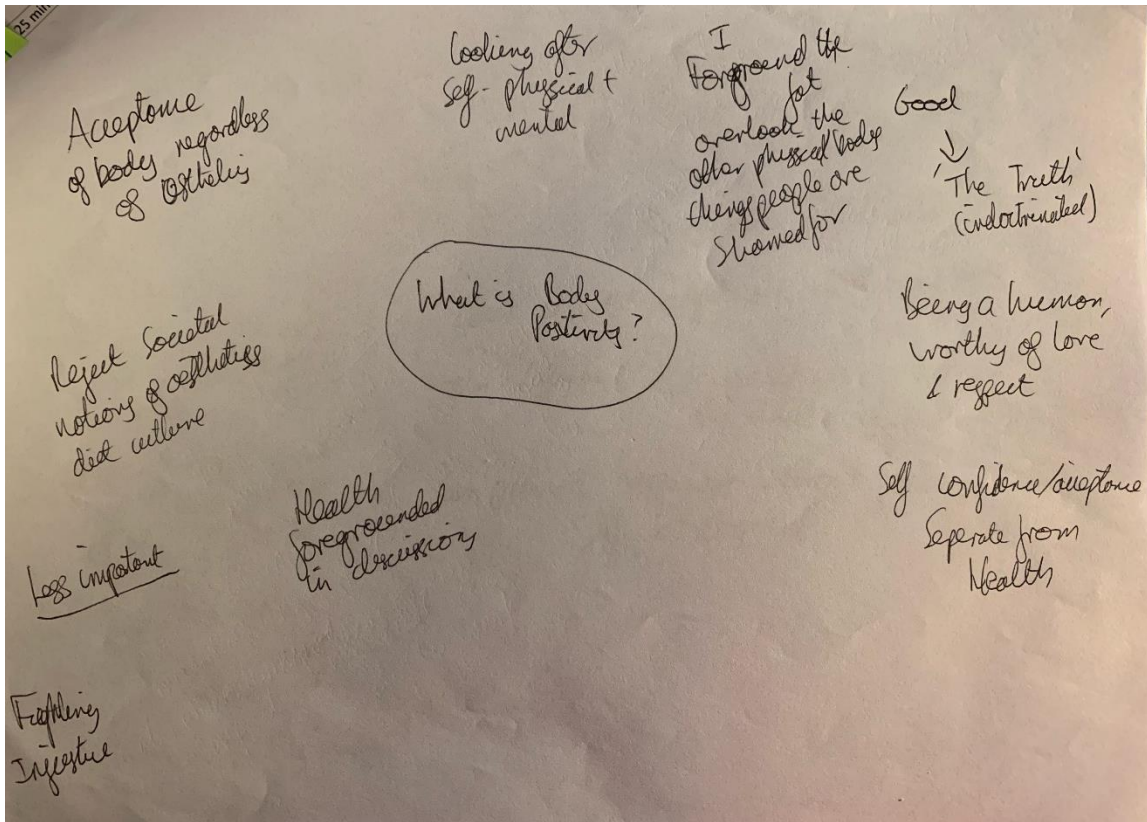 25 min
Acceptance
of body regardless
of aesthetics
Looking after
self - physical +
mental
I
Forground the
fat
overlook the
other physical/body
things people are
shamed for
Good
'The Truth'
(indoctrinated)
What is Body
Positivity?
Being a human,
worthy of love
& respect
Reject Societal
notions of aesthetics
diet culture
Health
foregrounded
in discussions
Self confidence/acceptance
Seperate from
Health
Less important
Fighting
Injustice